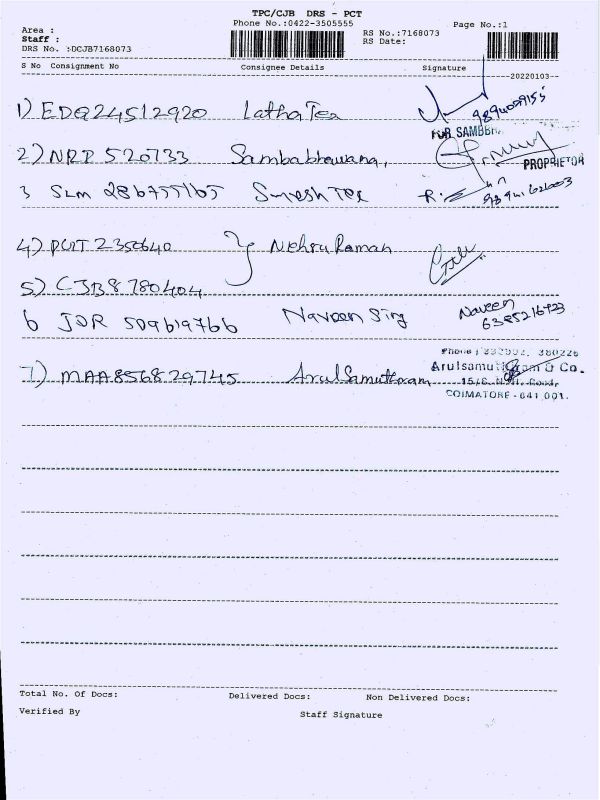 TPC/CJB DRS - PCT
Phone No.:0422-3505555
Page No.:1
Area :
Staff :
DRS No. :DCJB7168073
RS No.:7168073
RS Date:
S No Consignment No Consignee Details Signature
20220103
1) EDQ24512920 Latha Tex
FOR SAMBBH
2) NRD 520733 Sambabhavana,
PROPRIETOR
3 SLM 286755165 Suresh Tex
4) PUT 2350640 } Nehru Raman
5) CJB8780404
6 JDR 509619766 Naveen Sing Naveen
Phone : 380226
7) MAA856829745 Arul Samuthram Arulsamuthram & Co.
COIMATORE - 641 001.
Total No. Of Docs: Delivered Docs: Non Delivered Docs:
Verified By Staff Signature